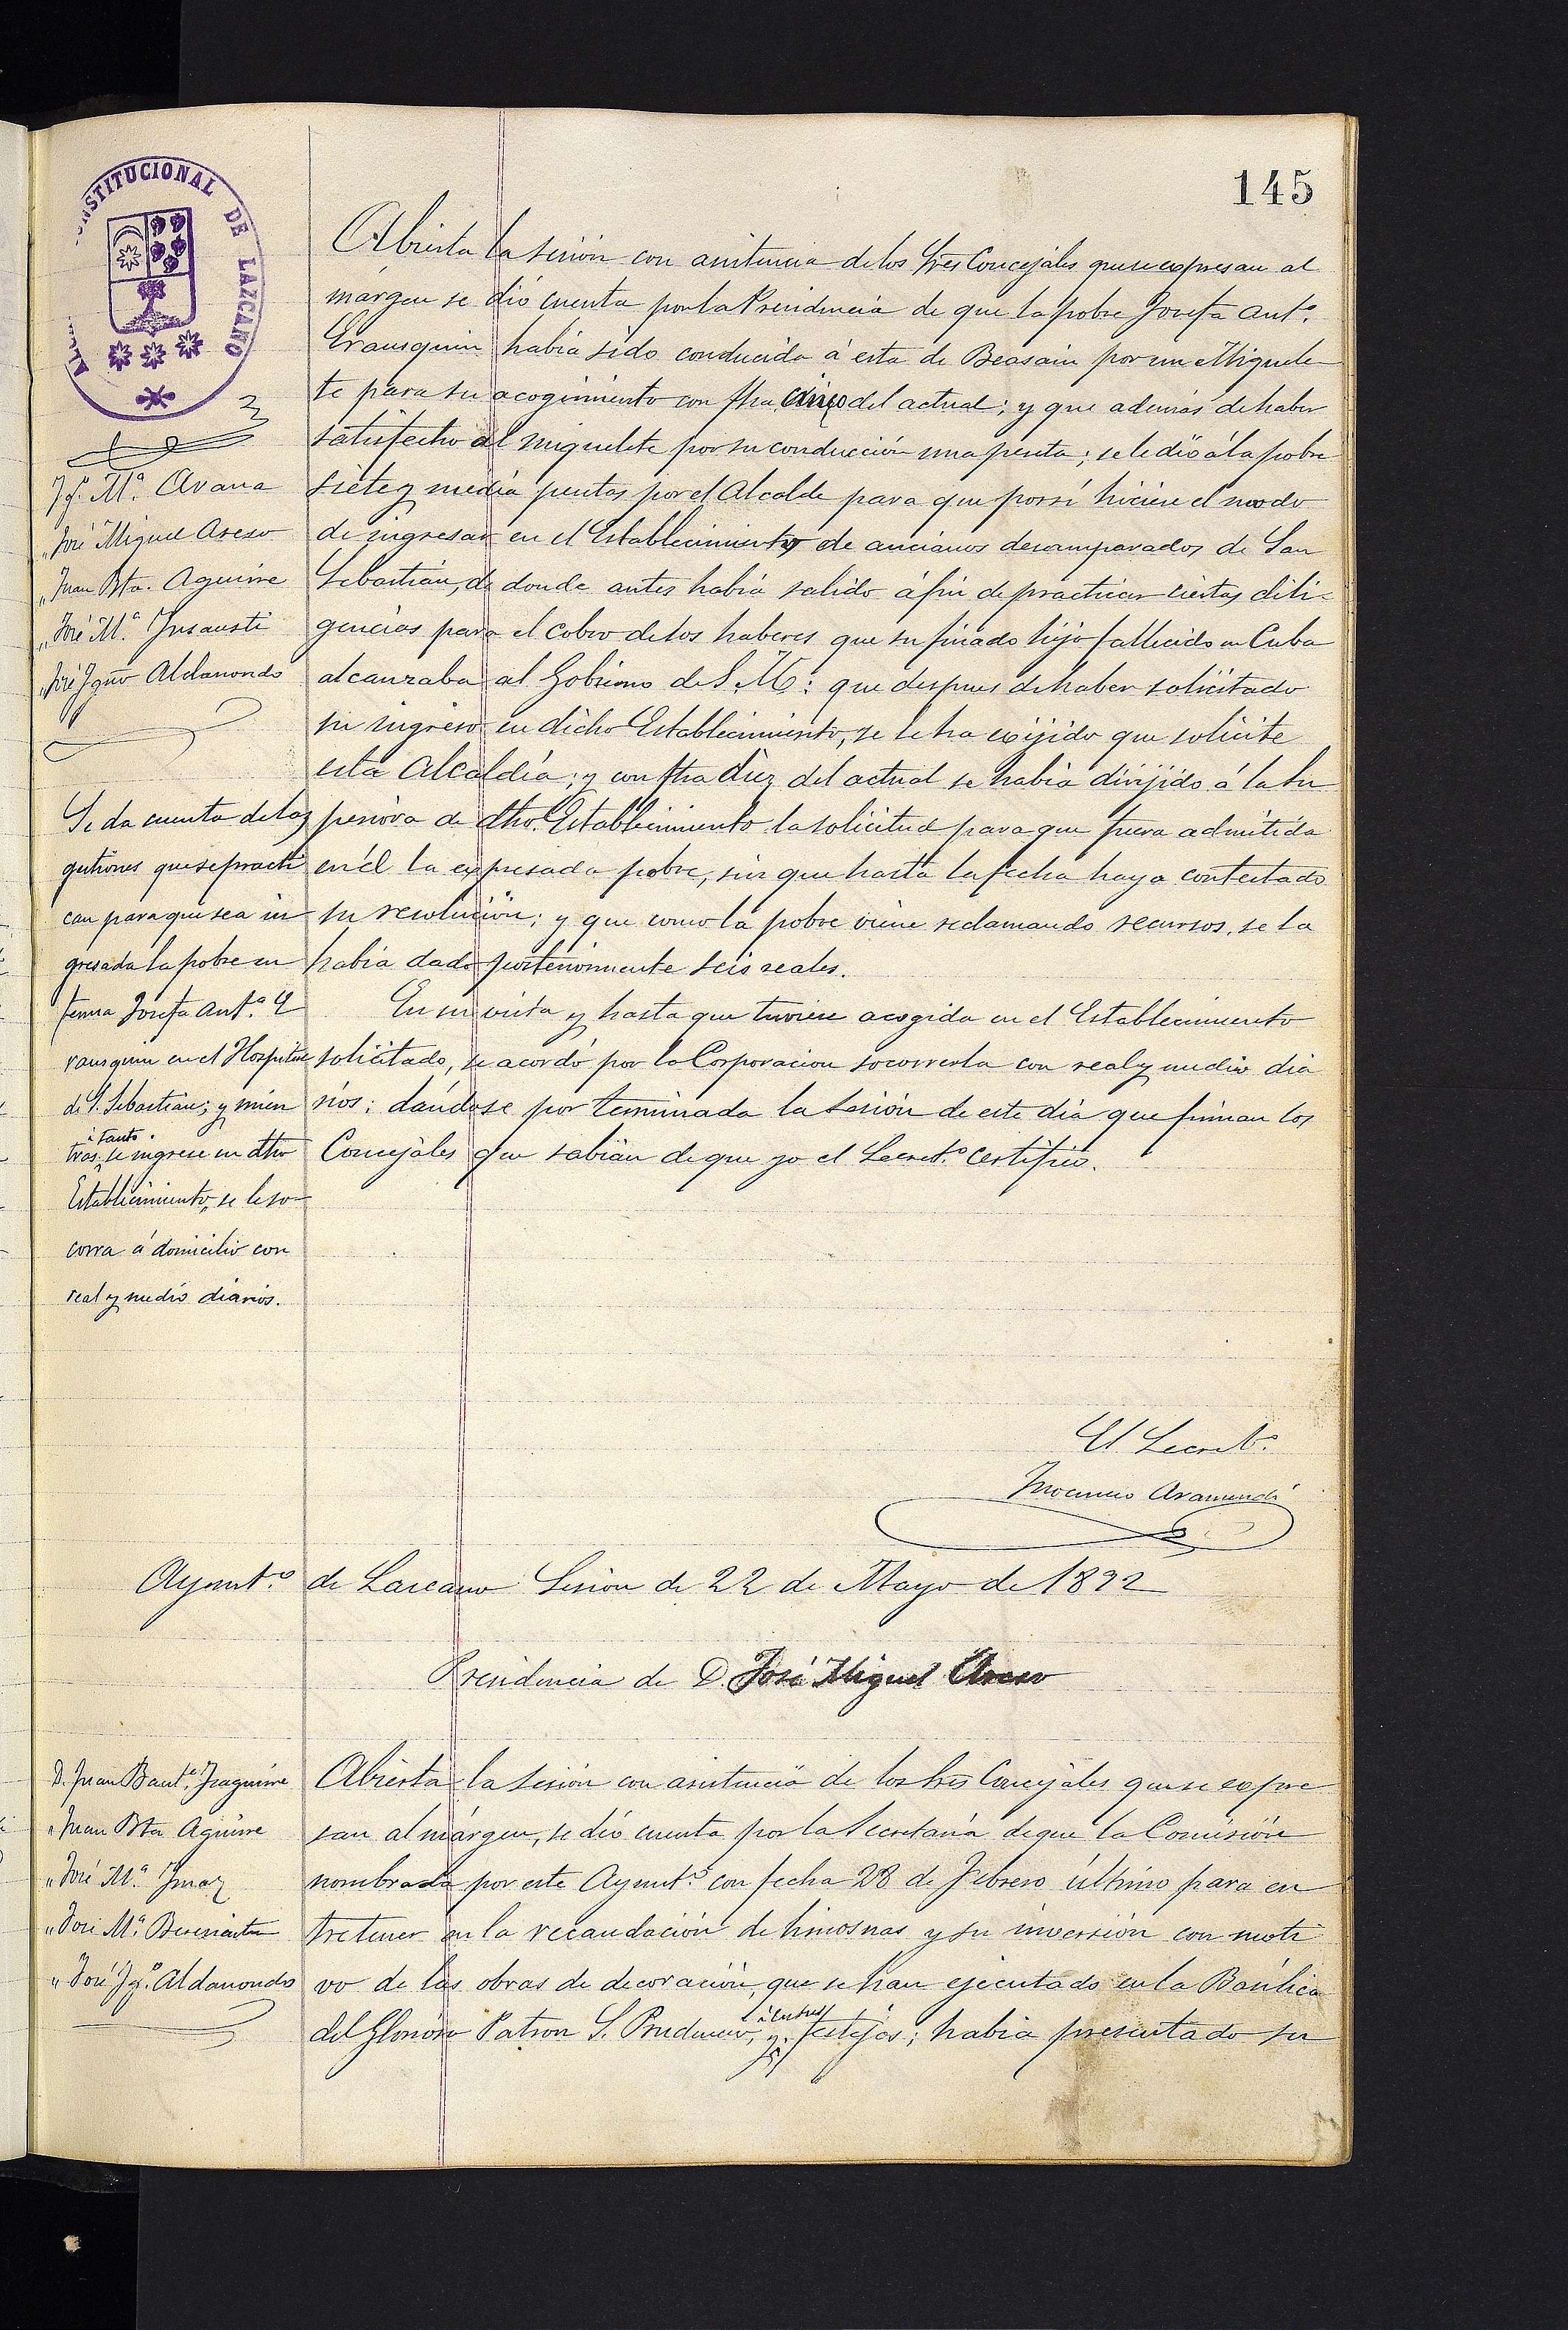 145
CONSTITUCIONAL DE LAZCANO
Abierta la sesión con asistencia de los Sres Concejales que se expresan al
márgen se dió cuenta por la Presidencia de que la pobre Josefa Antª.
Erausquin había sido conducida á esta de Beasain por un Miquele
te para su acogimiento con fha cinco del actual; y que además de haber
satisfecho al miquelete por su conducción una peseta; se le dió á la pobre
siete y media pesetas por el Alcalde para que por sí hiciese el modo
de ingresar en el Establecimiento de ancianos desamparados de San
Sebastián, de donde antes había salido á fin de practicar ciertas dili-
gencias para el cobro de los haberes que su finado hijo fallecido en Cuba
alcanzaba al Gobierno de S. M.: que despues de haber solicitado
su ingreso en dicho Establecimiento, se le ha exijido que solicite
esta Alcaldía; y con fha diez del actual se había dirijido á la Su
periora de dho. Establecimiento la solicitud para que fuera admitida
en él la expresada pobre, sin que hasta la fecha haya contestado
su resolución; y que como la pobre viene reclamando recursos, se la
había dado posteriormente seis reales.
En su vista y hasta que tuviese acogida en el Establecimiento
solicitado, se acordó por la Corporacion socorrerla con real y medio dia
rios: dándose por terminada la sesión de este dia que firman los
Concejales que sabían de que yo el Secretº certifico.
Jº. Mª. Arana
" José Miguel Areso
" Juan Bta. Aguirre
" José Mª. Insausti
" José Jgnº Aldanondo
Se da cuenta de las
gestiones que se practi
can para que sea in
gresada la pobre en
ferma Josefa Antª. E
rausquin en el Hospital
de S. Sebastian; y mien
tras i tanto se ingrese en dho
Establecimiento, se le so-
corra á domicilio con
real y medio diarios.
El Secretº
Inocencio Aramendi
Ayuntº. de Lazcano Sesion de 22 de Mayo de 1892
Presidencia de D. José Miguel Areso
D. Juan Bautª. Iraguirre
" Juan Bta Aguirre
" José Mª. Imaz
" José Mª.
" José Jgº. Aldanondo
Abierta la sesión con asistencia de los Sres Concejales que se expre
san al márgen, se dió cuenta por la Secretaría de que la Comisión
nombrada por este Ayuntº. con fecha 28 de Febrero último para en
tretener en la recaudación de limosnas y su inversión con moti
vo de las obras de decoración, que se han ejecutado en la Basílica
del Glorioso Patron S. Prudencio, y festejos; habia presentado su